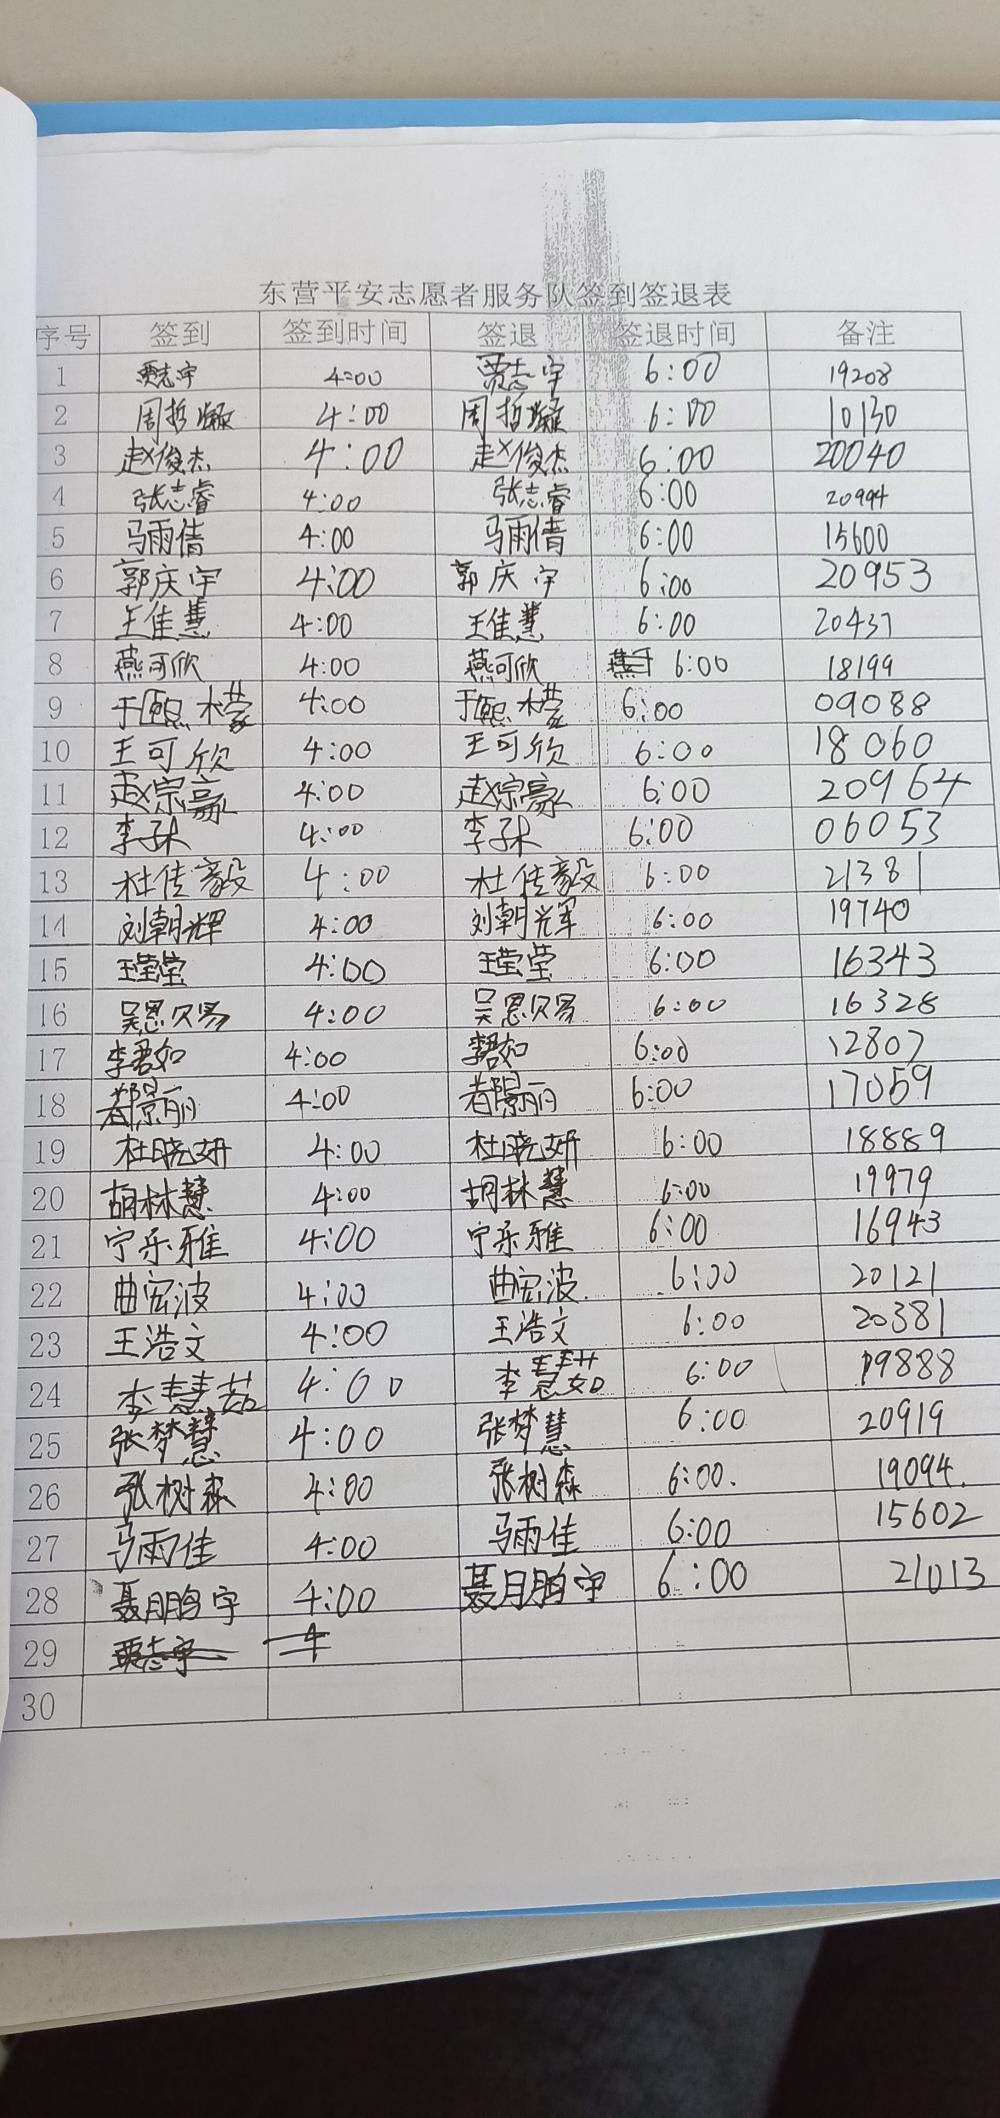 东营平安志愿者服务队签到签退表
序号 签到 签到时间 签退 签退时间 备注
1 贾志宇 4:00 贾志宇 6:00 19208
2 周哲凝 4:00 周哲凝 6:00 10130
3 赵俊杰 4:00 赵俊杰 6:00 20040
4 张志睿 4:00 张志睿 6:00 20994
5 马雨倩 4:00 马雨倩 6:00 15600
6 郭庆宇 4:00 郭庆宇 6:00 20953
7 王佳慧 4:00 王佳慧 6:00 20437
8 燕可欣 4:00 燕可欣 6:00 18199
9 于熙檬 4:00 于熙檬 6:00 09088
10 王可欣 4:00 王可欣 6:00 18060
11 赵宗豪 4:00 赵宗豪 6:00 20964
12 李子木 4:00 李子木 6:00 06053
13 杜传毅 4:00 杜传毅 6:00 21381
14 刘朝辉 4:00 刘朝辉 6:00 19740
15 王莹莹 4:00 王莹莹 6:00 16343
16 吴恩赐 4:00 吴恩赐 6:00 16328
17 李君如 4:00 李君如 6:00 12807
18 都景丽 4:00 都景丽 6:00 17059
19 杜晓妍 4:00 杜晓妍 6:00 18889
20 胡林慧 4:00 胡林慧 6:00 19979
21 宁乐雅 4:00 宁乐雅 6:00 16943
22 曲宏波 4:00 曲宏波 6:00 20121
23 王浩文 4:00 王浩文 6:00 20381
24 李慧茹 4:00 李慧茹 6:00 19888
25 张梦慧 4:00 张梦慧 6:00 20919
26 张树森 4:00 张树森 6:00. 19094.
27 马雨佳 4:00 马雨佳 6:00 15602
28 聂鹏宇 4:00 聂鹏宇 6:00 21013
29 贾志宇 4
30